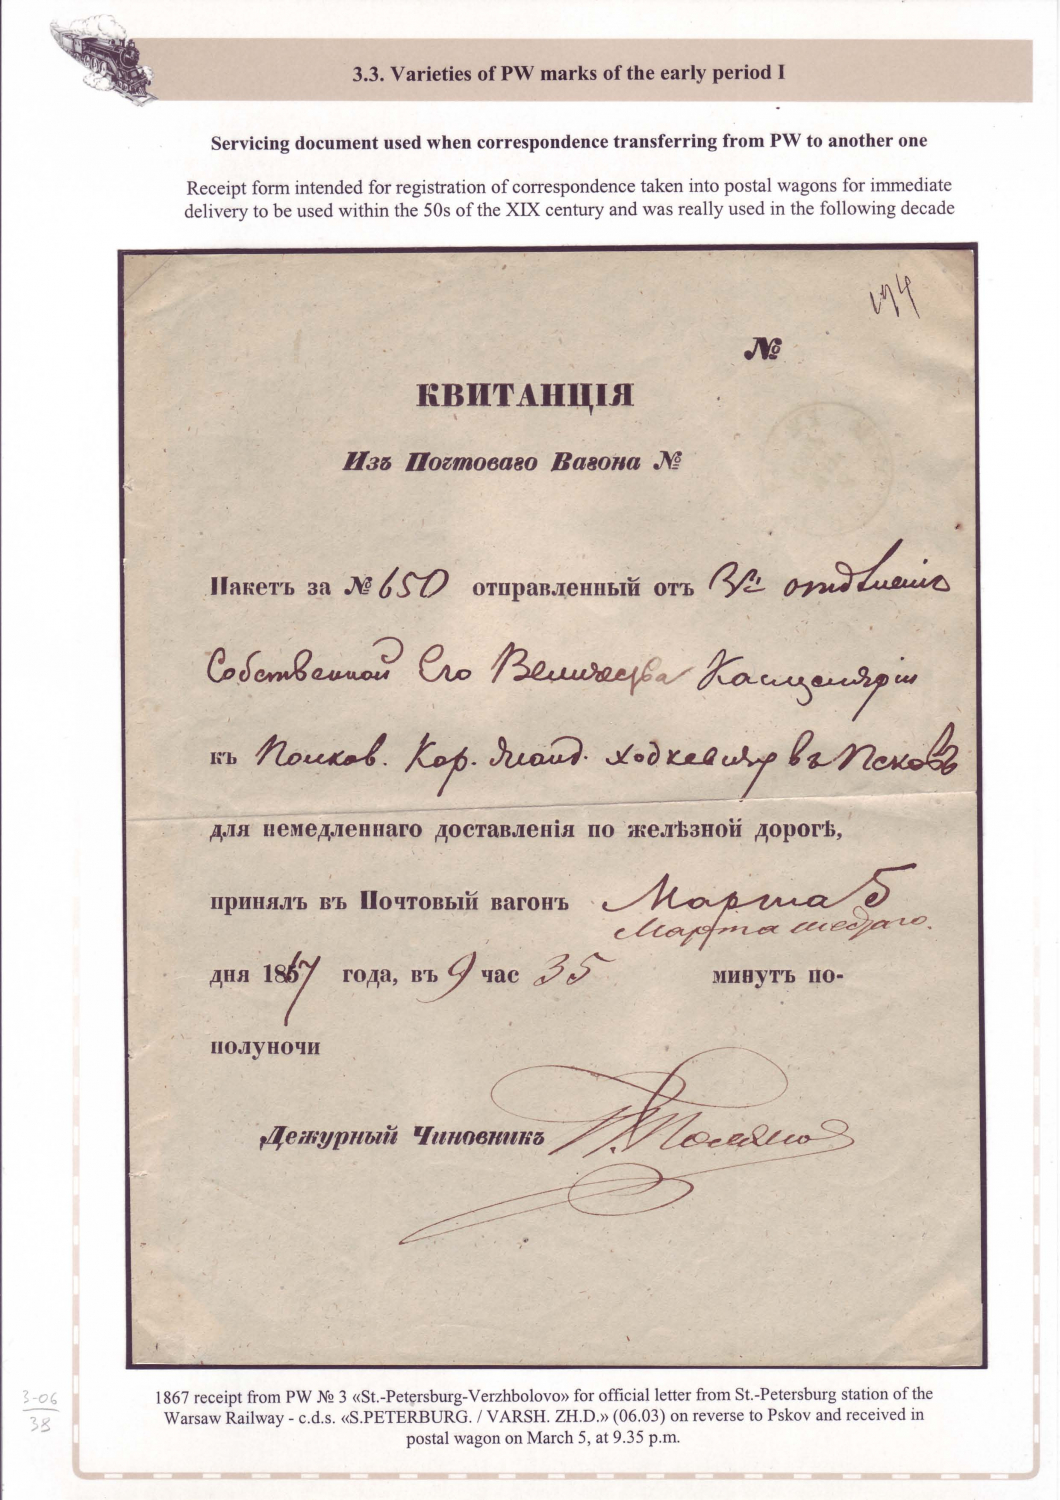 3.3. Varieties of PW marks of the early period I
Servicing document used when correspondence transferring from PW to another one
Receipt form intended for registration of correspondence taken into postal wagons for immediate
delivery to be used within the 50s of the XIX century and was really used in the following decade
№
КВИТАНЦІЯ
Изъ Почтоваго Вагона №
Пакетъ за № 650 отправленный отъ отдѣленія
Собственной Его Величества Канцеляріи
къ Полков. Кор. Жанд. Ходкевичу въ Псковъ
для немедленнаго доставленія по желѣзной дорогѣ,
принялъ въ Почтовый вагонъ Марта 5
Марта
дня 1867 года, въ 9 час 35 минутъ по-
полуночи
Дежурный Чиновникъ
1867 receipt from PW № 3 «St.-Petersburg-Verzhbolovo» for official letter from St.-Petersburg station of the
Warsaw Railway - c.d.s. «S.PETERBURG. / VARSH. ZH.D.» (06.03) on reverse to Pskov and received in
postal wagon on March 5, at 9.35 p.m.
3-06
38